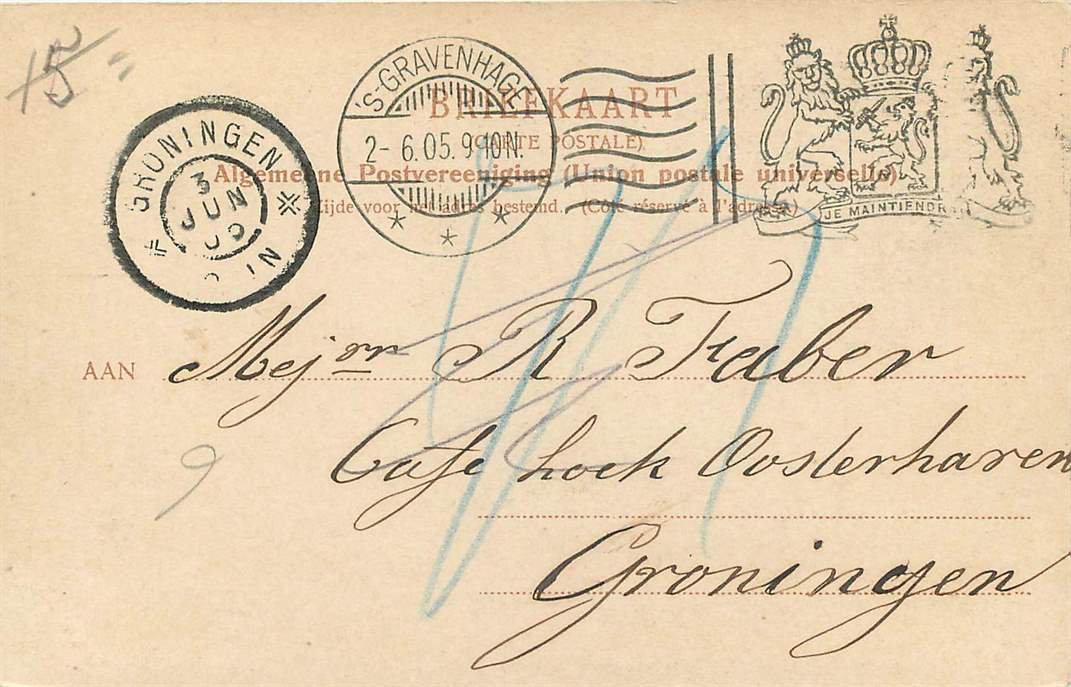 15 =
'S-GRAVENHAGE
2- 6.05.9-10N.
JE MAINTIENDR
GRONINGEN
3
JUN
05
BRIEFKAART
(CARTE POSTALE).
Algemeene Postvereeniging (Union postale universelle)
Zijde voor het adres bestemd. (Côté réservé à l'adresse)
AAN Mejor R Faber
Cafe hoek Oosterhaven
Groningen
9